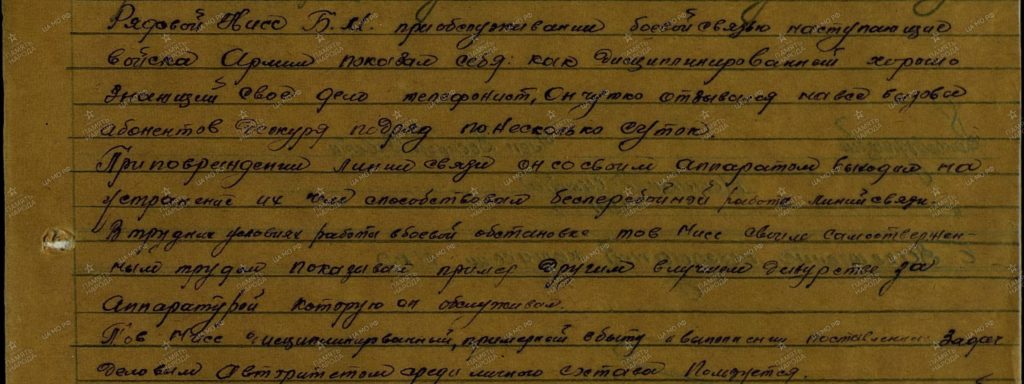 Рядовой Нисс Б.М. при обслуживании боевой связью наступающие
войска Армии показал себя: как дисциплинированный хорошо
знающий своё дело телефонист, Он чутко отзывался на все вызова
абонентов Дежуря подряд по несколько суток.
При повреждении линии связи он со своим аппаратом выходил на
устранение их чем способствовал бесперебойной работе линий связи.
В трудных условиях работы в боевой обстановке тов Нисс своим самоотвержен-
ным трудом показывал пример другим в лучшем дежурстве за
Аппаратурой которую он обслуживал.
Тов Нисс дисциплинированный, примерный в быту и выполнении поставленных Задач
Деловым авторитетом среди личного состава Пользуется.